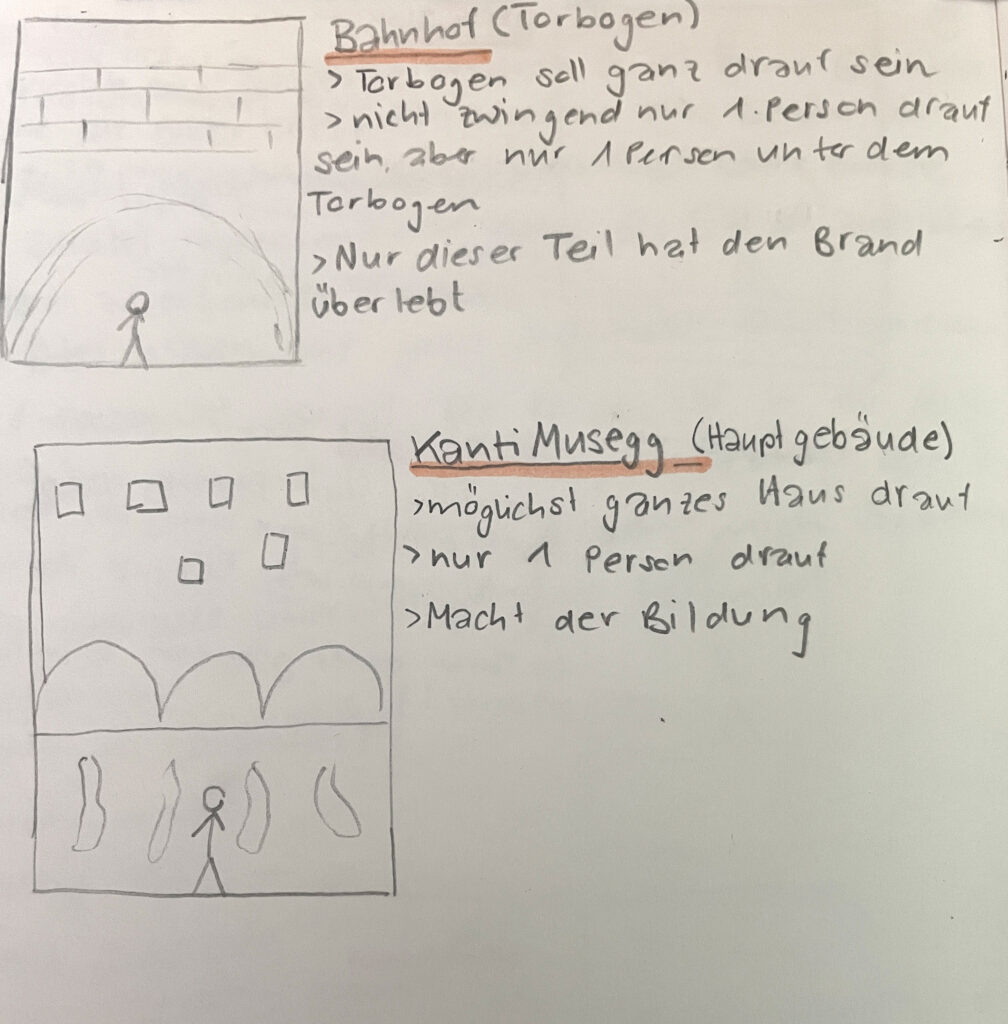 Bahnhof (Torbogen)
> Torbogen soll ganz drauf sein
> nicht zwingend nur 1. Person drauf
sein, aber nur 1 Person unter dem
Torbogen
> Nur dieser Teil hat den Brand
überlebt
Kanti Musegg (Hauptgebäude)
> möglichst ganzes Haus drauf
> nur 1 Person drauf
> Macht der Bildung